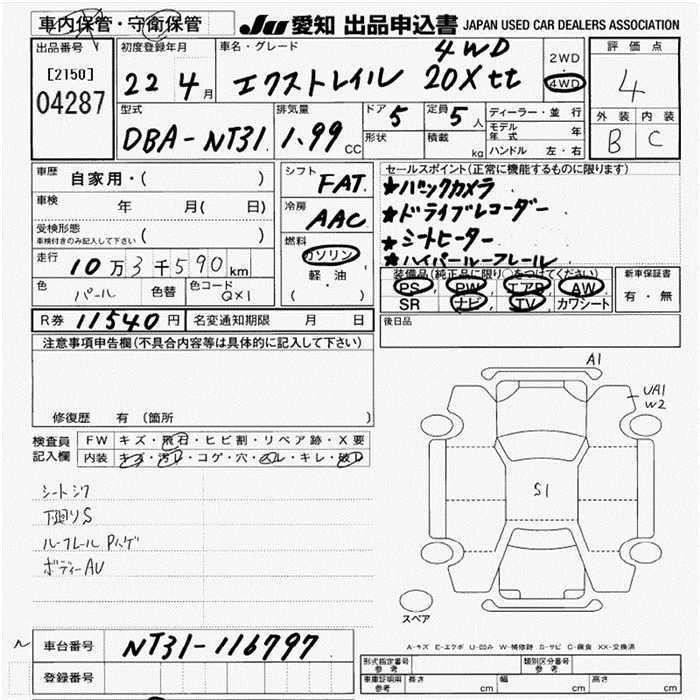 車内保管・守衛保管
JU 愛知 出品申込書 JAPAN USED CAR DEALERS ASSOCIATION
出品番号 初度登録年月 車名・グレード 4WD 2WD・4WD 評価点
[2150] 04287 22年 4月 エクストレイル 20Xtt 4
外装 内装
B C
型式 排気量 ドア 5 定員 5人 ディーラー・並行
DBA-NT31 1.99CC 形状 積載 kg モデル年式 年
ハンドル 左・右
車歴 自家用・( ) シフト FAT セールスポイント(正常に機能するものに限ります)
★バックカメラ
車検 年 月( 日) 冷房 AAC ★ドライブレコーダー
受検形態 ( ) ★シートヒーター
車検付きのみ記入して下さい
★ハイパールーフレール
走行 10万3千590km 燃料 ガソリン 軽油 ( ・ )
装備品(純正品に限り○をつけてください) 新車保証書
色 パール 色替 色コード QX1 PS PW エアB AW 有・無
SR ナビ TV カワシート
R券 11540円 名変通知期限 月 日 後日品
注意事項申告欄(不具合内容等は具体的に記入して下さい)
修復歴 有 (箇所 )
検査員記入欄 FW キズ・飛石・ヒビ割・リペア跡・X要
内装 キズ・汚レ・コゲ・穴・ ・キレ・破レ
シートシワ
下廻りS
ルーフレールPハゲ
ボディーAU
A1
UA1
W2
S1
スペア
A-キズ E-エクボ U-凹み W-補修跡 S-サビ C-腐食 XX-交換済
車台番号 NT31-116797
登録番号
形式指定番号 参考 類別区分番号 参考
車庫証明用 参考 長さ cm 幅 cm 高さ cm